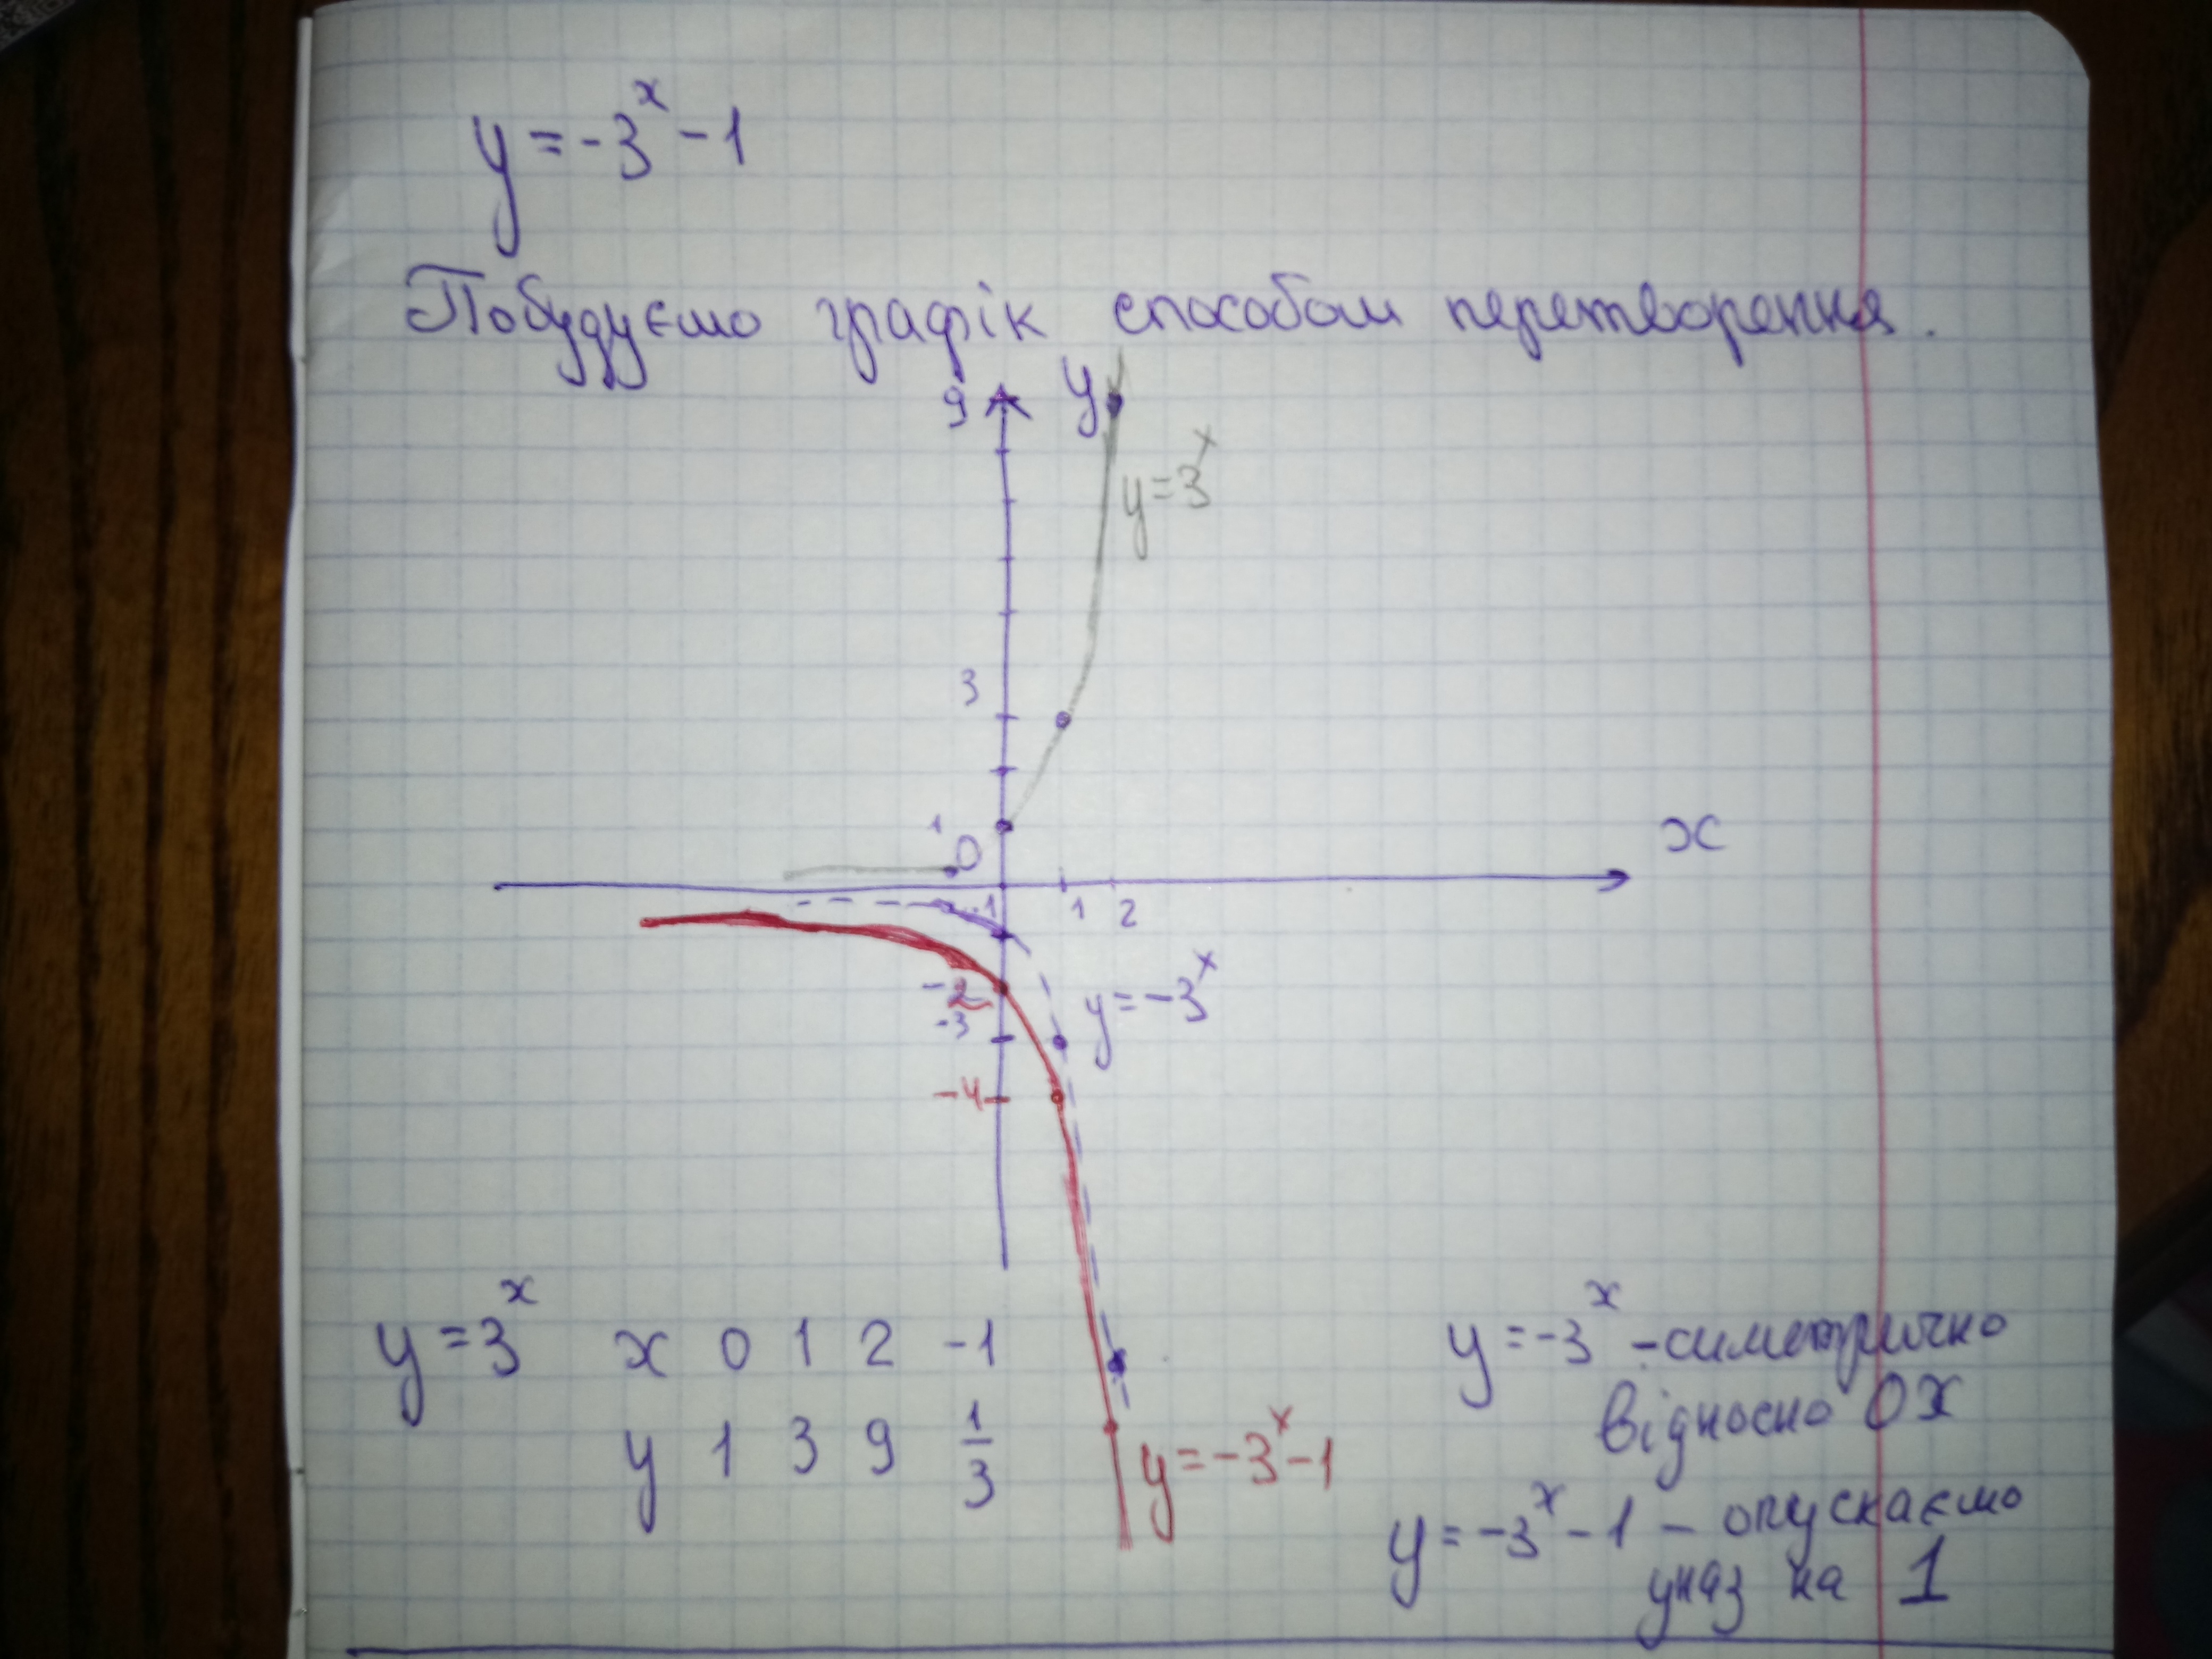 y = -3^x - 1
Побудуємо графік способом перетворення.
9 y
y = 3^x
3
1
0
x
-1 1 2
-2
y = -3^x
-3
-4
y = 3^x x 0 1 2 -1
y 1 3 9 1/3
y = -3^x - 1
y = -3^x - симетрично
відносно OX
y = -3^x - 1 - опускаємо
униз на 1